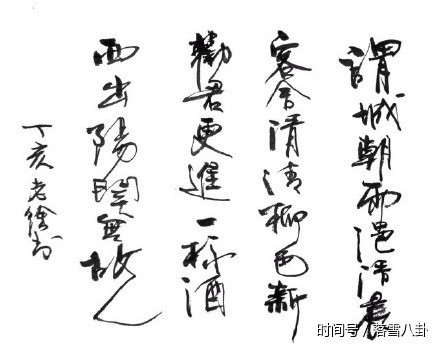 謂城朝雨浥清晨
客舍清清柳色新
勸君更進一杯酒
西出陽関無故人
丁亥老徐书
时间号／落雪八卦